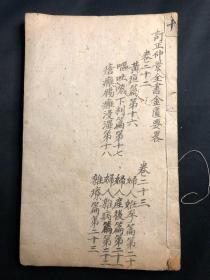 十
訂正仲景全書金匱要畧
卷二十二
黃疸篇第十六
嘔吐噦下利篇第十七
瘡癰腸癰浸淫第十八
卷二十三
婦人妊孕篇第二十
婦人產後篇第二十一
婦人雜病篇第二十二
雜療篇第二十三